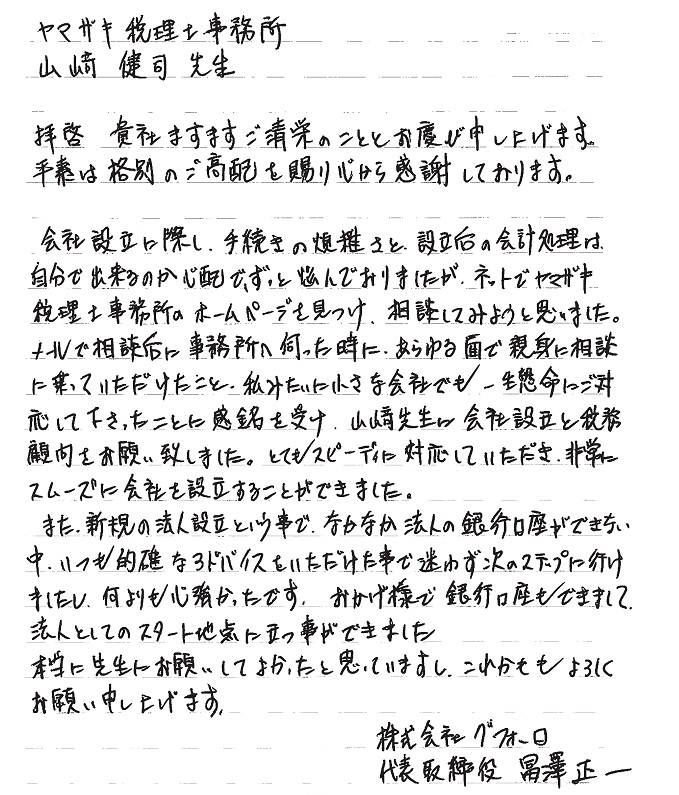 ヤマザキ税理士事務所
山﨑 健司 先生
拝啓 貴社ますますご清栄のこととお慶び申し上げます。
平素は格別のご高配を賜り心から感謝しております。
会社設立に際し、手続きの煩雑さと、設立后の会計処理は
自分で出来るのか心配で、ずっと悩んでおりましたが、ネットでヤマザキ
税理士事務所のホームページを見つけ、相談してみようと思いました。
メールで相談后に事務所へ伺った時に、あらゆる面で親身に相談
に乗っていただけたこと、私みたいに小さな会社でも一生懸命にご対
応して下さったことに感銘を受け、山﨑先生に会社設立と税務
顧問をお願い致しました。とてもスピーディに対応していただき、非常に
スムーズに会社を設立することができました。
また、新規の法人設立という事で、なかなか法人の銀行口座ができない
中、いつも的確なアドバイスをいただけた事で迷わず次のステップに行け
ましたし、何よりも心強かったです。おかげ様で銀行口座もできまして、
法人としてのスタート地点に立つ事ができました
本当に先生にお願いしてよかったと思っていますし、これからもよろしく
お願い申し上げます。
株式会社グフォーロ
代表取締役 冨澤正一